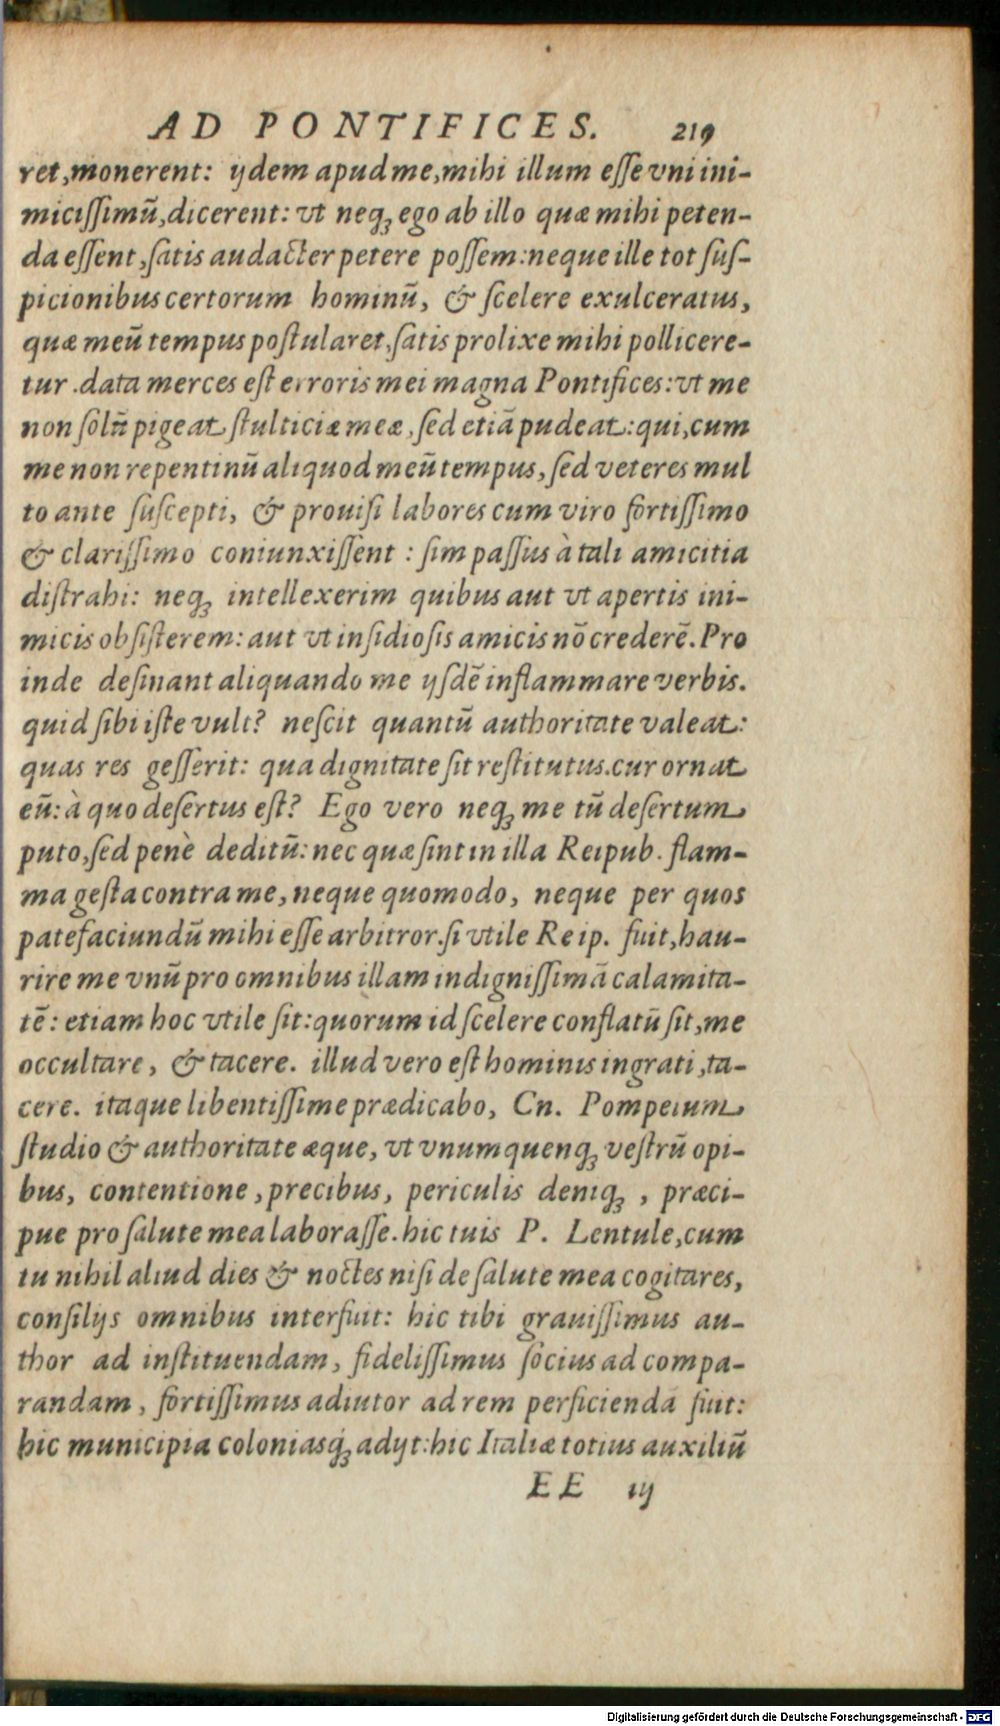 AD PONTIFICES. 219
ret,monerent: ijdem apud me,mihi illum eſſe vni ini-
miciſſimũ,dicerent: vt neqꝫ ego ab illo quæ mihi peten-
da eſſent,ſatis audacter petere poſſem:neque ille tot ſuſ-
picionibus certorum hominũ, & ſcelere exulceratus,
quæ meũ tempus poſtularet,ſatis prolixe mihi pollicere-
tur .data merces eſt erroris mei magna Pontifices:vt me
non ſolũ pigeat ſtulticiæ meæ, ſed etiã pudeat:qui,cum
me non repentinũ aliquod meũ tempus, ſed veteres mul
to ante ſuſcepti, & prouiſi labores cum viro fortiſſimo
& clariſſimo coniunxiſſent : ſim paſſus à tali amicitia
diſtrahi: neqꝫ intellexerim quibus aut vt apertis ini-
micis obſiſterem: aut vt inſidioſis amicis nõ crederẽ. Pro
inde deſinant aliquando me ijſdẽ inflammare verbis.
quid ſibi iſte vult? neſcit quantũ authoritate valeat:
quas res geſſerit: qua dignitate ſit reſtitutus.cur ornat
eũ: à quo deſertus eſt? Ego vero neqꝫ me tũ deſertum
puto,ſed penè deditũ: nec quæ ſint in illa Reipub. flam-
ma geſta contra me, neque quomodo, neque per quos
patefaciundũ mihi eſſe arbitror.ſi vtile Reip. fuit,hau-
rire me vnũ pro omnibus illam indigniſſimã calamita-
tẽ: etiam hoc vtile ſit:quorum id ſcelere conflatũ ſit,me
occultare, & tacere. illud vero eſt hominis ingrati,ta-
cere. itaque libentiſſime prædicabo, Cn. Pompeium
ſtudio & authoritate æque, vt vnumquenqꝫ veſtrũ opi-
bus, contentione,precibus, periculis deniqꝫ , præci-
pue pro ſalute mea laboraſſe.hic tuis P. Lentule,cum
tu nihil aliud dies & noctes niſi de ſalute mea cogitares,
conſilijs omnibus interfuit: hic tibi grauiſſimus au-
thor ad inſtituendam, fideliſſimus ſocius ad compa-
randam, fortiſſimus adiutor ad rem perficiendã fuit:
hic municipia coloniasqꝫ adijt:hic Italiæ totius auxiliũ
EE iij
Digitalisierung gefördert durch die Deutsche Forschungsgemeinschaft - DFG